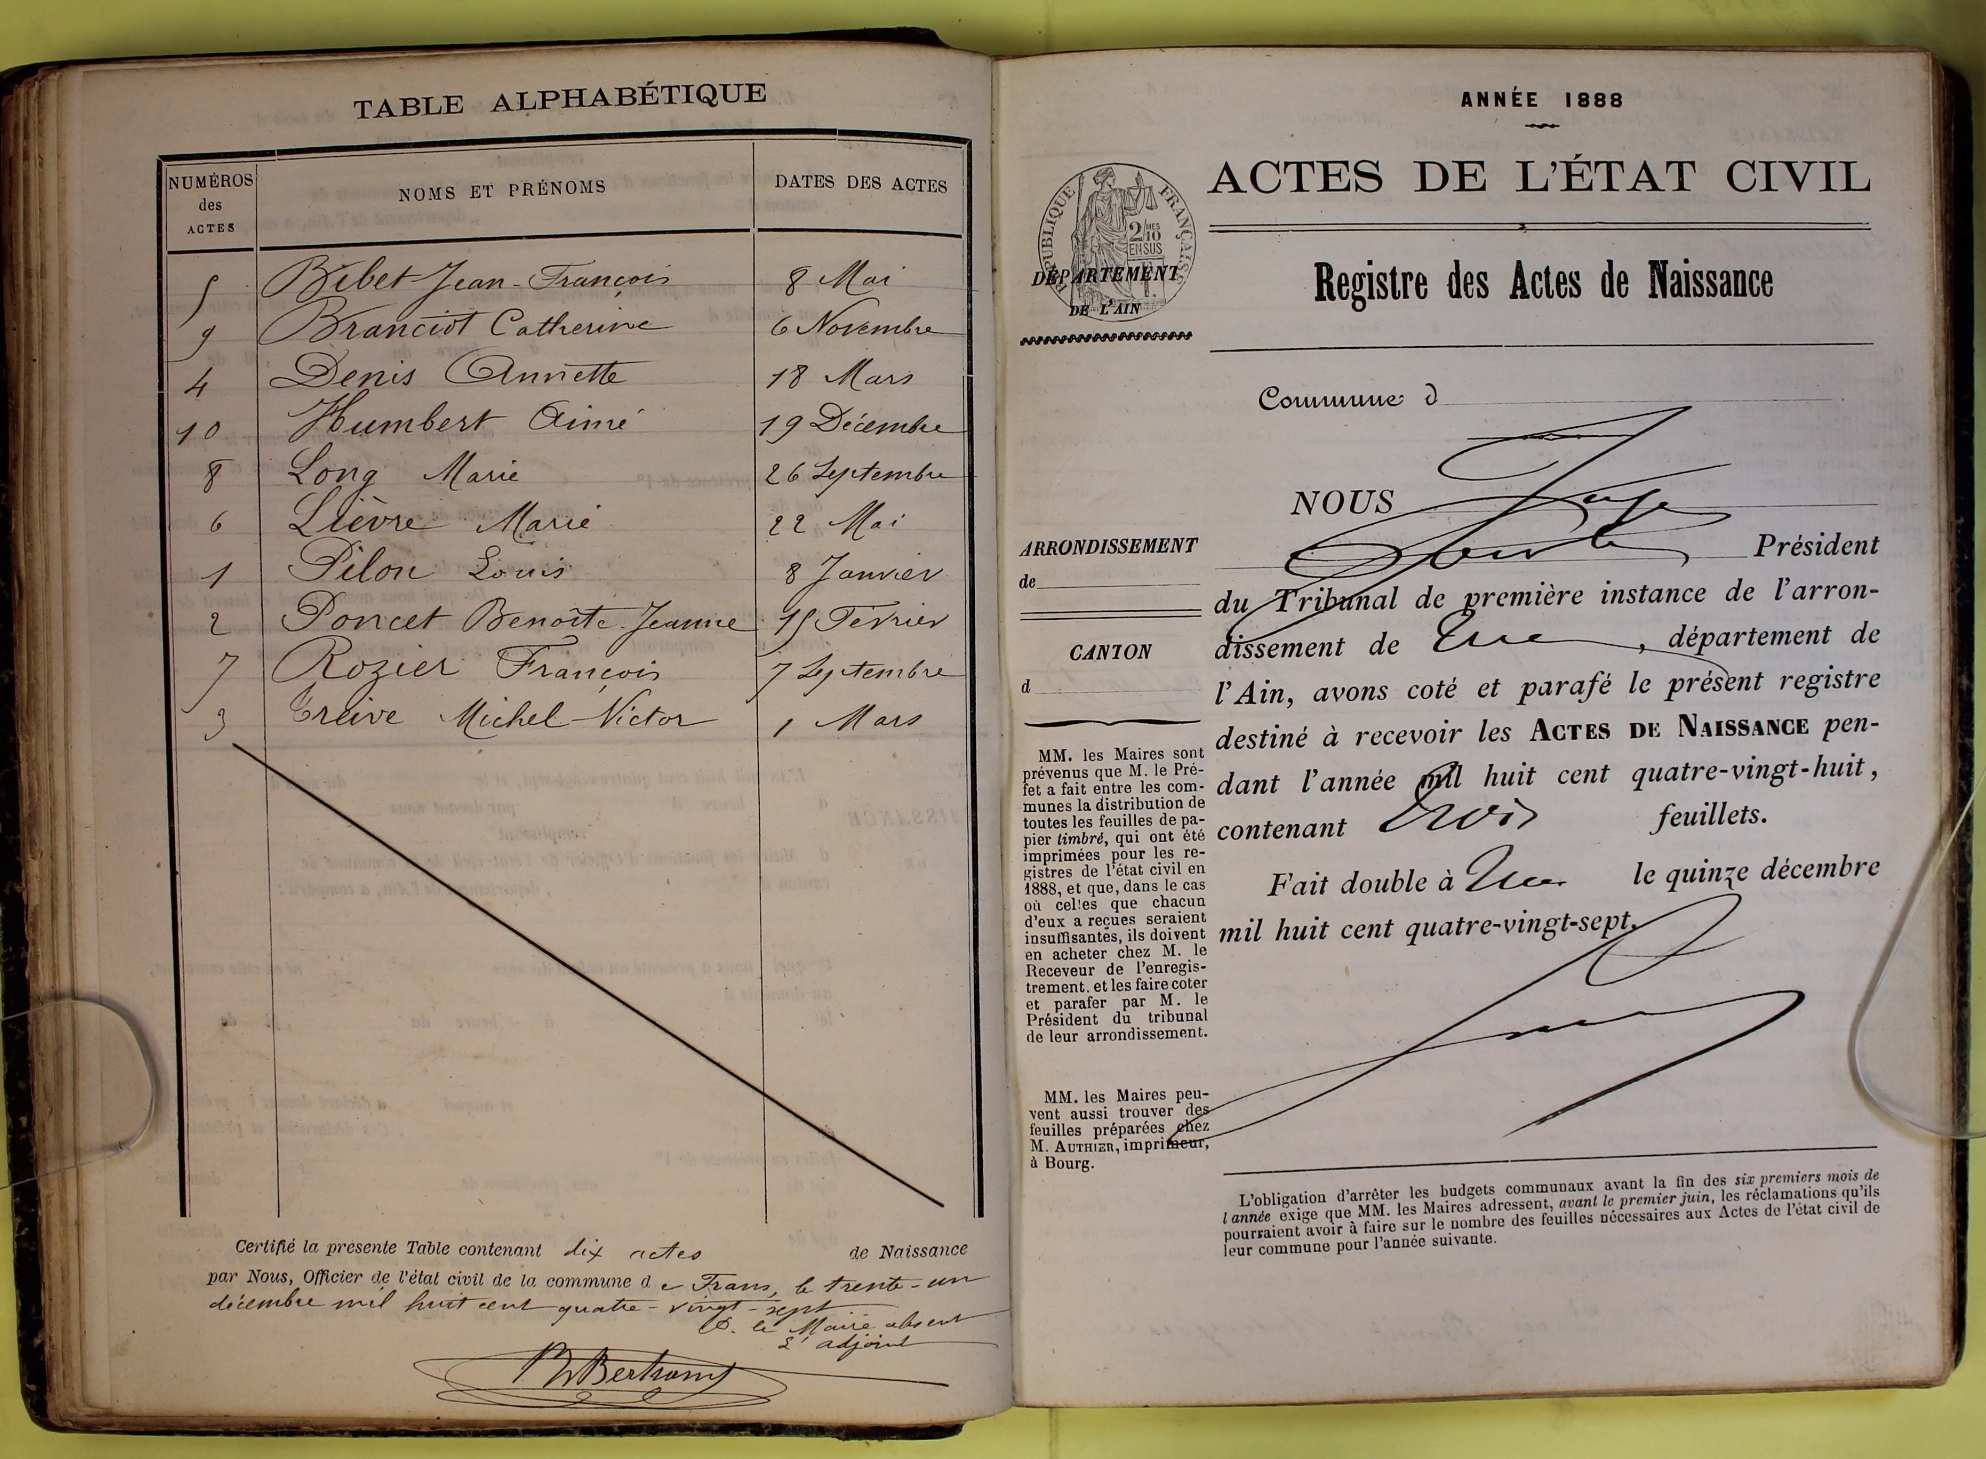 TABLE ALPHABÉTIQUE
NUMÉROS des ACTES NOMS ET PRÉNOMS DATES DES ACTES
5 Bibet Jean-François 8 Mai
9 Branciot Catherine 6 Novembre
4 Denis Annette 18 Mars
10 Humbert Aimé 19 Décembre
8 Long Marie 26 Septembre
6 Lièvre Marie 22 Mai
1 Pilon Louis 8 Janvier
2 Poncet Benoîte-Jeanne 15 Février
7 Rozier François 7 Septembre
3 Treive Michel-Victor 1 Mars
Certifié la presente Table contenant dix actes de Naissance
par Nous, Officier de l'état civil de la commune de Trans, le trente-un
décembre mil huit cent quatre-vingt-sept
P. le Maire absent
L'adjoint
Bertrand
ANNÉE 1888
ACTES DE L'ÉTAT CIVIL
RÉPUBLIQUE FRANÇAISE
2/10 EN SUS
DÉPARTEMENT
DE L'AIN
Registre des Actes de Naissance
Commune d
ARRONDISSEMENT
de
CANTON
d
MM. les Maires sont
prévenus que M. le Pré-
fet a fait entre les com-
munes la distribution de
toutes les feuilles de pa-
pier timbré, qui ont été
imprimées pour les re-
gistres de l'état civil en
1888, et que, dans le cas
où celles que chacun
d'eux a reçues seraient
insuffisantes, ils doivent
en acheter chez M. le
Receveur de l'enregis-
trement. et les faire coter
et parafer par M. le
Président du tribunal
de leur arrondissement.
MM. les Maires peu-
vent aussi trouver des
feuilles préparées chez
M. AUTHIER, imprimeur,
à Bourg.
NOUS Juge
Président
du Tribunal de première instance de l'arron-
dissement de , département de
l'Ain, avons coté et parafé le présent registre
destiné à recevoir les ACTES DE NAISSANCE pen-
dant l'année mil huit cent quatre-vingt-huit,
contenant trois feuillets.
Fait double à le quinze décembre
mil huit cent quatre-vingt-sept.
L'obligation d'arrêter les budgets communaux avant la fin des six premiers mois de
l'année exige que MM. les Maires adressent, avant le premier juin, les réclamations qu'ils
pourraient avoir à faire sur le nombre des feuilles nécessaires aux Actes de l'état civil de
leur commune pour l'année suivante.